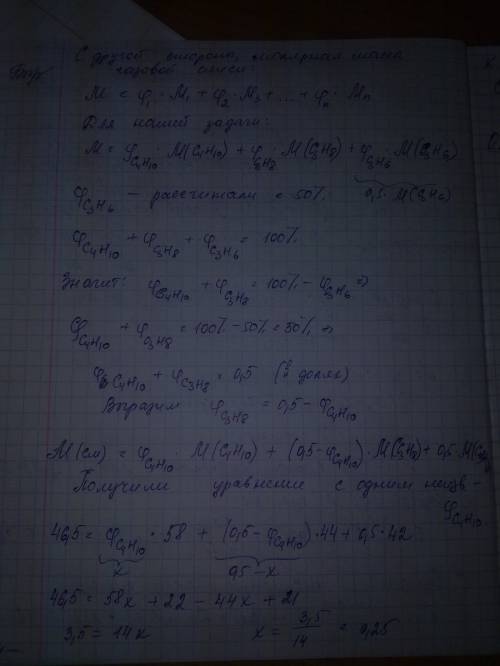 С другой стороны, молярная масса
газовой смеси:
M = φ₁·M₁ + φ₂·M₂ + ... + φₙ·Mₙ
Для нашей задачи:
M = φC₄H₁₀·M(C₄H₁₀) + φC₃H₈·M(C₃H₈) + φC₃H₆·M(C₃H₆)
φC₃H₆ - рассчитали = 50% 0,5·M(C₃H₆)
φC₄H₁₀ + φC₃H₈ + φC₃H₆ = 100%
Значит: φC₄H₁₀ + φC₃H₈ = 100% - φC₃H₆ ⇒
φC₄H₁₀ + φC₃H₈ = 100% - 50% = 50% ⇒
φC₄H₁₀ + φC₃H₈ = 0,5 (в долях)
Выразим φC₃H₈ = 0,5 - φC₄H₁₀
M(см) = φC₄H₁₀·M(C₄H₁₀) + (0,5-φC₄H₁₀)·M(C₃H₈) + 0,5·M(C₃H₆)
Получили уравнение с одним неизв-
φC₄H₁₀
46,5 = φC₄H₁₀·58 + (0,5-φC₄H₁₀)·44 + 0,5·42
x 0,5-x
46,5 = 58x + 22 - 44x + 21
3,5 = 14x x = 3,5/14 = 0,25